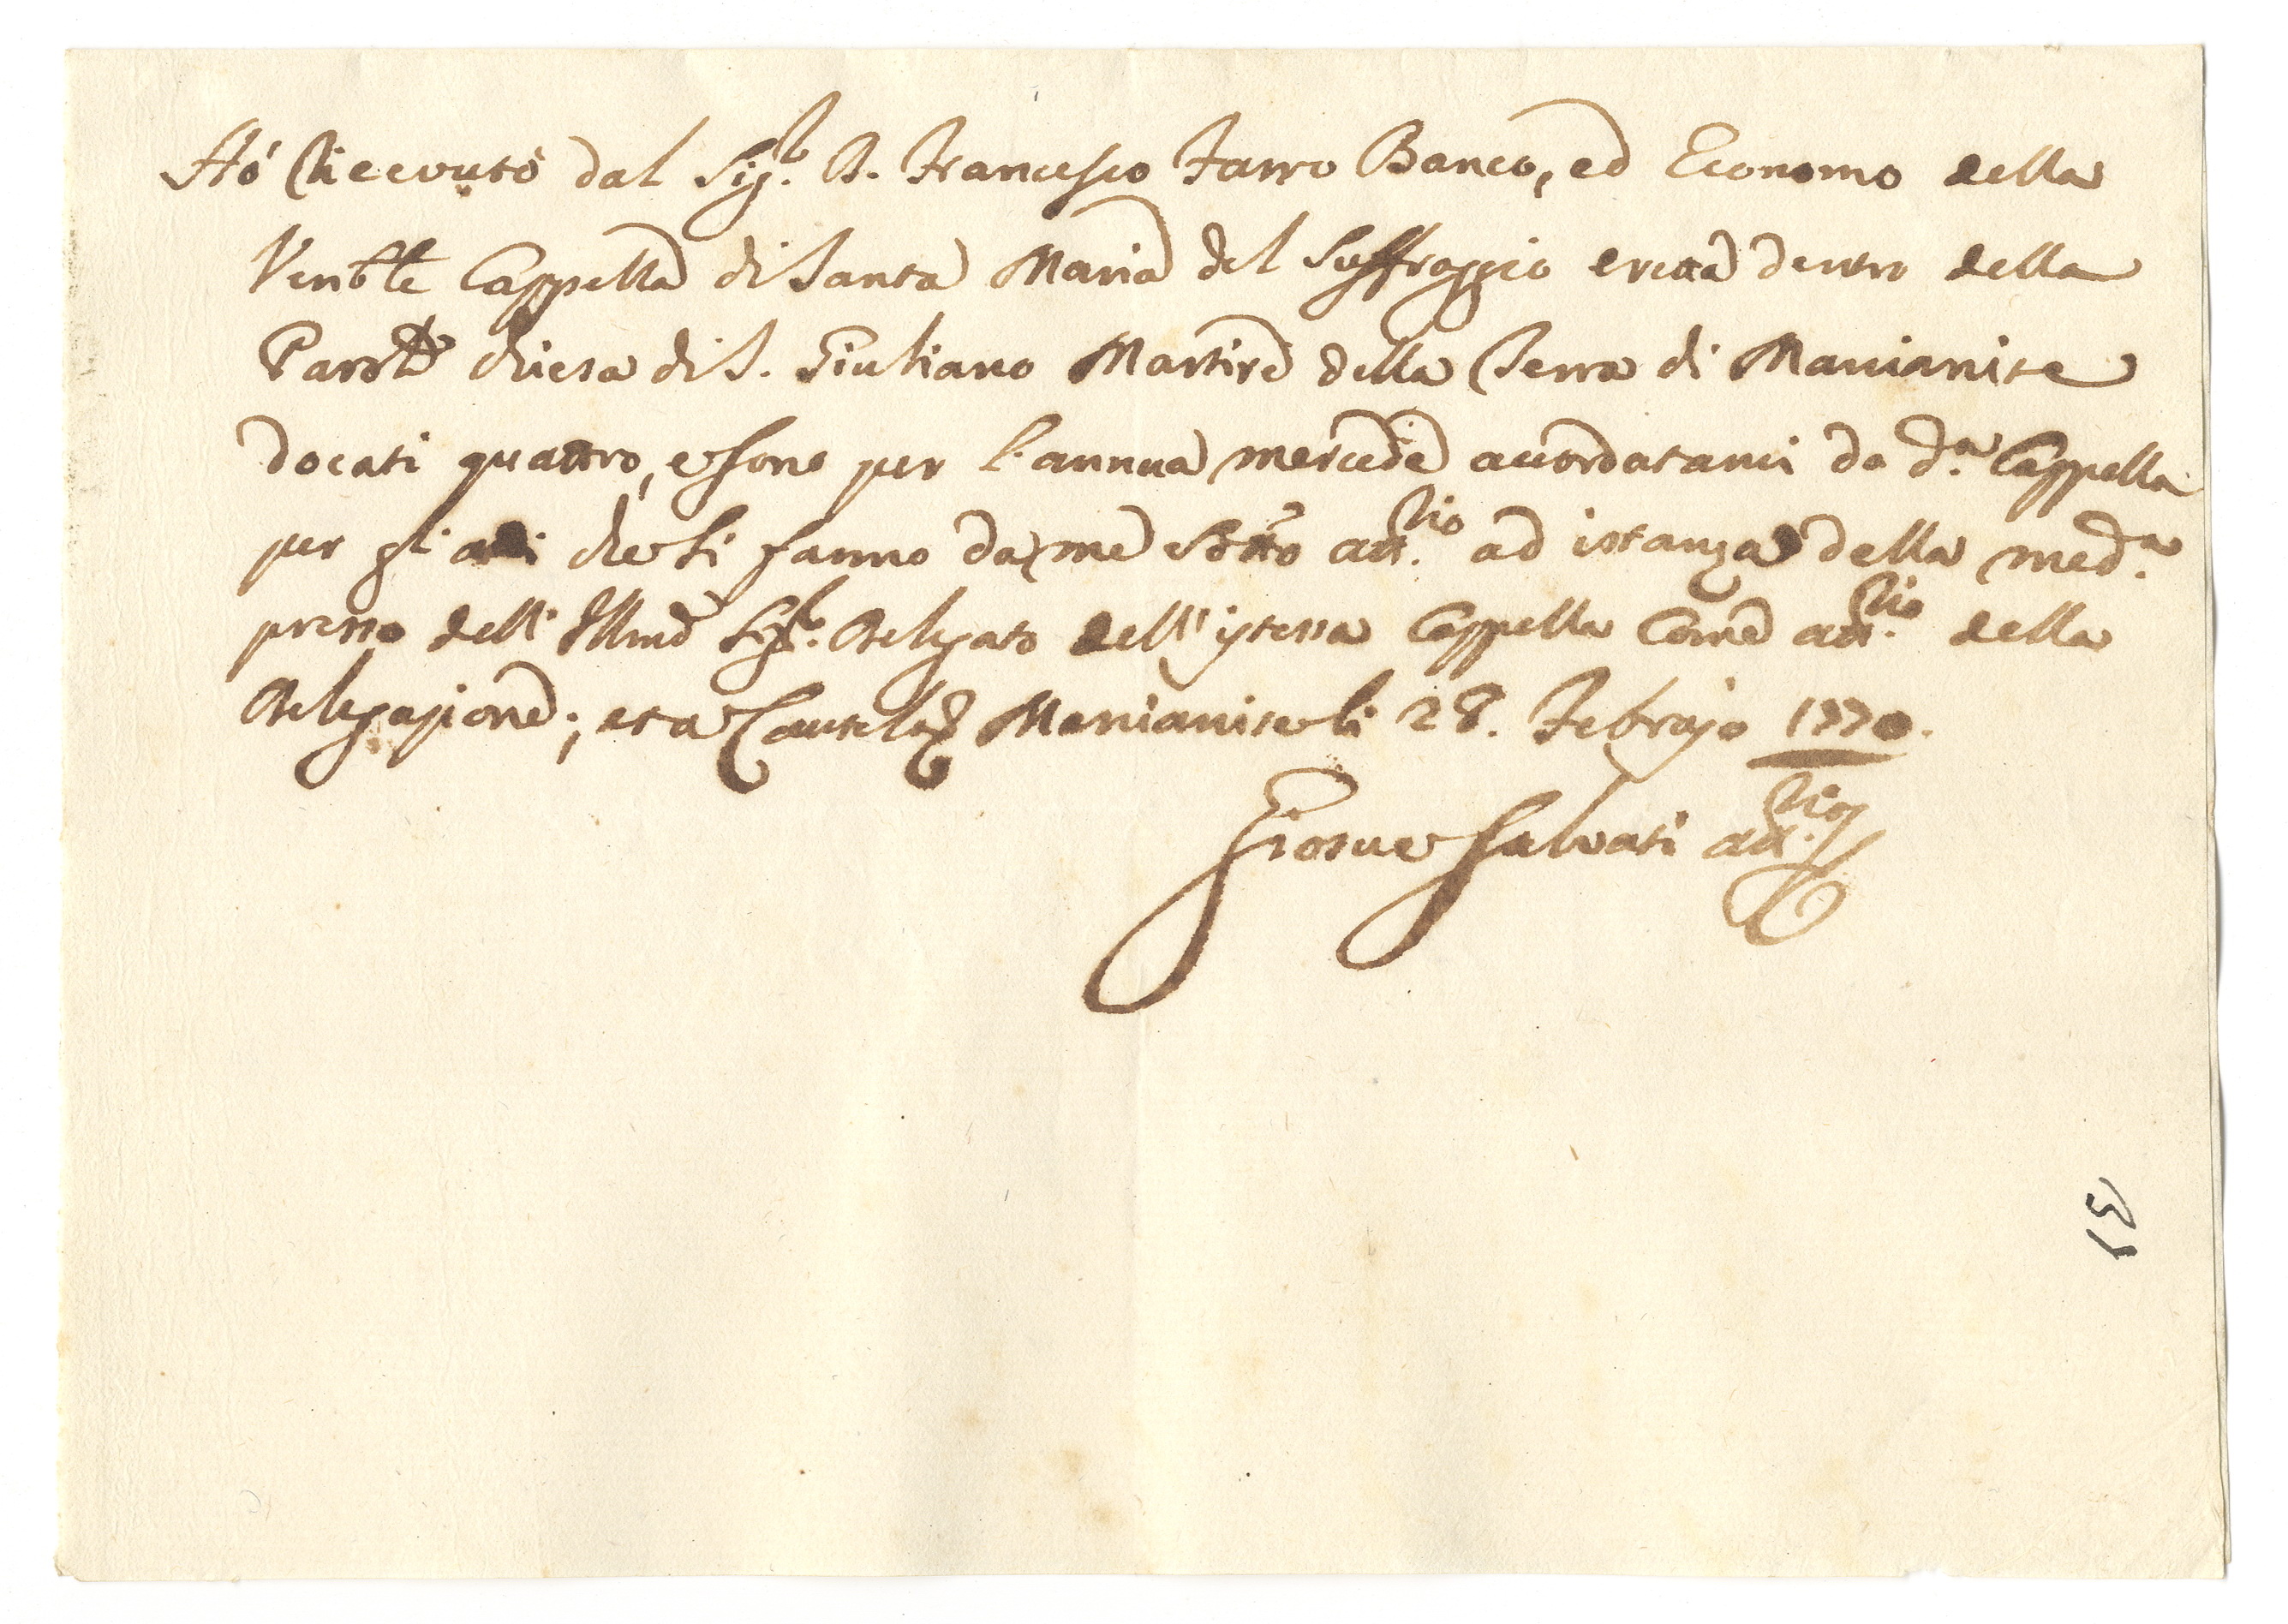 Hó Ricevuto dal Sig.r D. Francesco Farro Banco, ed Economo della
Venble Cappella di Santa Maria del Suffraggio eretta dentro della
Paroble Chiesa di S. Giuliano Martire della Terra di Marcianise
docati quattro, e sono per l'annua mercede accordatami da d.a Cappella
per gli atti che si fanno da me sotto att.rio ad istanza della med.a
presso dell' Illmo Sig.r Delegato dell' istessa Cappella come att.rio della
Delegazione; et a Cautela Marcianise li 28. Febrajo 1770.
Giosue Salvati att.rio
13